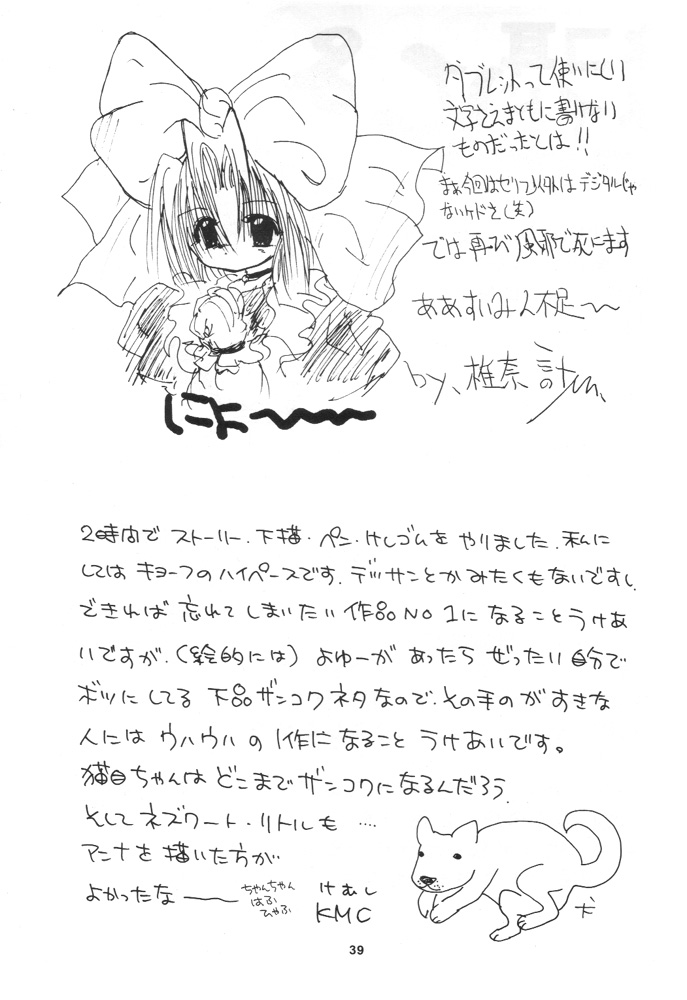 タブレットって使いにくい
文字さえまともに書けない
ものだったとは!!
まぁ今回はセリフ以外はデジタルじゃ
ないケドさ(笑)
では再び風邪で死にます
ああすいみん不足〜〜
by、椎奈
にょ〜〜〜〜
2時間でストーリー、下描・ペン・けしゴムをやりました。私に
してはキョーフのハイペースです。デッサンとかみたくもないですし、
できれば忘れてしまいたい作品NO1になることうけあ
いですが、(絵的には)よゆーがあったらぜったい自分で
ボツにしてる下品ザンコクネタなので、その手のがすきな
人にはウハウハの1作になることうけあいです。
猫目ちゃんはどこまでザンコクになるんだろう。
そしてネズワート・リトルも ….
アンナを描いた方が
よかったな〜〜
ちゃんちゃん
はふ
ひゃふ
けむし
KMC
犬
39